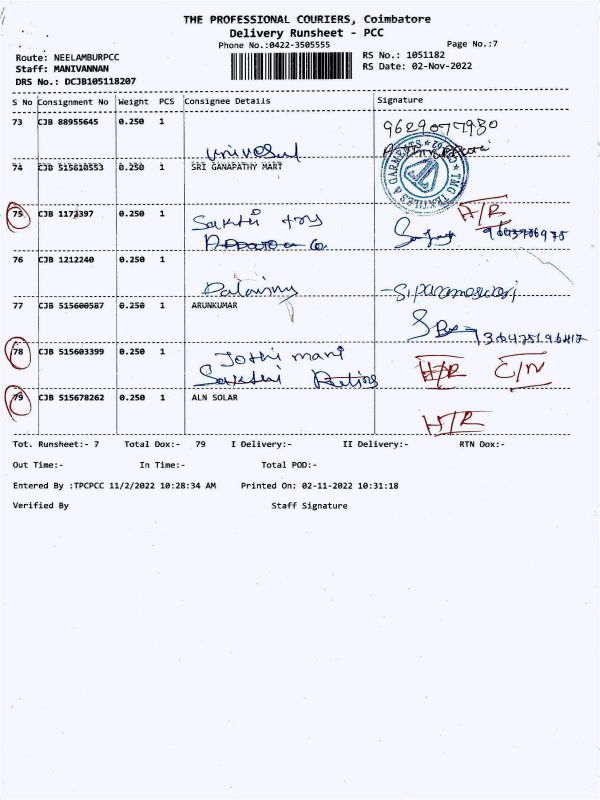 THE PROFESSIONAL COURIERS, Coimbatore
Delivery Runsheet - PCC
Phone No.:0422-3505555
Page No.:7
Route: NEELAMBURPCC
RS No.: 1051182
Staff: MANIVANNAN
RS Date: 02-Nov-2022
DRS No.: DCJB105118207
S No Consignment No Weight PCS Consignee Details Signature
73 CJB 88955645 0.250 1
9629077930
univosul
74 CJB 515610553 0.250 1 SRI GANAPATHY MART
TMG TEXTILES & GARMENTS
75 CJB 1172397 0.250 1
Sakthi toys
A/R
76 CJB 1212240 0.250 1
Palaniny
S. parameswari
77 CJB 515600587 0.250 1 ARUNKUMAR
78 CJB 515603399 0.250 1
Jothi mani
Sakthi
H/R C/N
79 CJB 515678262 0.250 1 ALN SOLAR
H/R
Tot. Runsheet:- 7 Total Dox:- 79 I Delivery:- II Delivery:- RTN Dox:-
Out Time:- In Time:- Total POD:-
Entered By :TPCPCC 11/2/2022 10:28:34 AM Printed On: 02-11-2022 10:31:18
Verified By Staff Signature